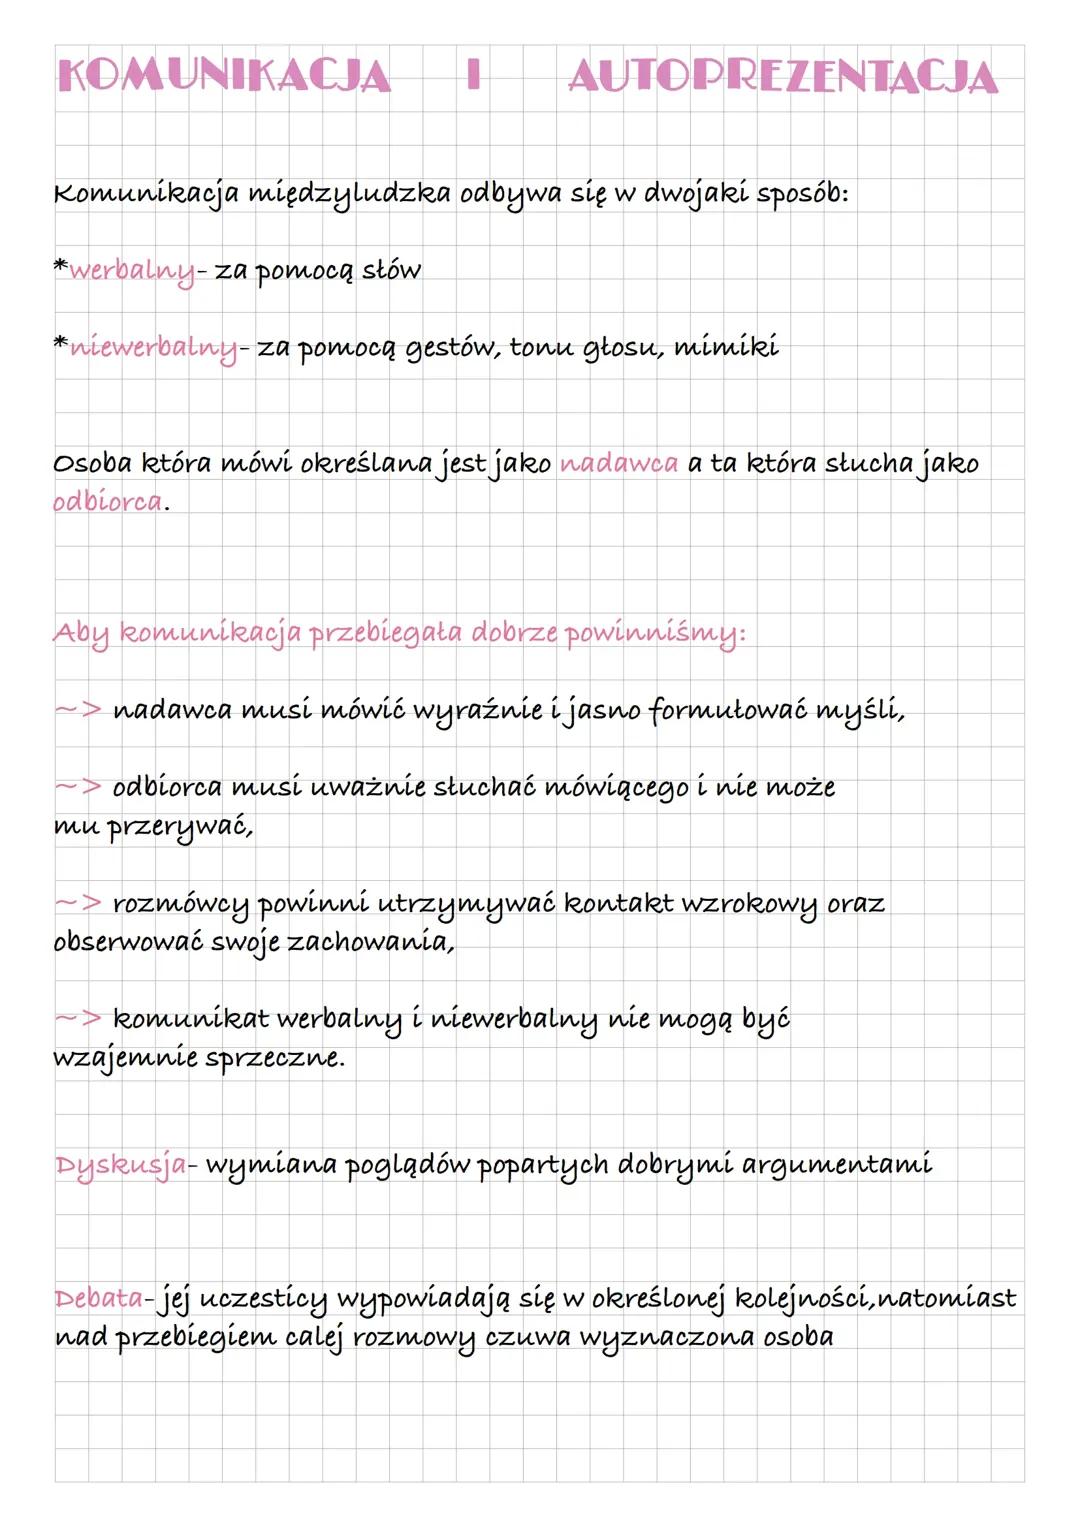 KOMUNIKACJA I AUTOPREZENTACJA
Komunikacja międzyludzka odbywa się w dwojaki sposób:
*werbalny- za pomocą słów
*niewerbalny- za pomocą gestów, tonu głosu, mimiki
Osoba która mówi określana jest jako nadawca a ta która słucha jako
odbiorca.
Aby komunikacja przebiegała dobrze powinniśmy:
~> nadawca musi mówić wyraźnie i jasno formułować myśli,
~> odbiorca musi uważnie słuchać mówiącego i nie może
mu przerywać,
~> rozmówcy powinni utrzymywać kontakt wzrokowy oraz
obserwować swoje zachowania,
~> komunikat werbalny i niewerbalny nie mogą być
wzajemnie sprzeczne.
Dyskusja- wymiana poglądów popartych dobrymi argumentami
Debata- jej uczesticy wypowiadają się w określonej kolejności,natomiast
nad przebiegiem calej rozmowy czuwa wyznaczona osoba